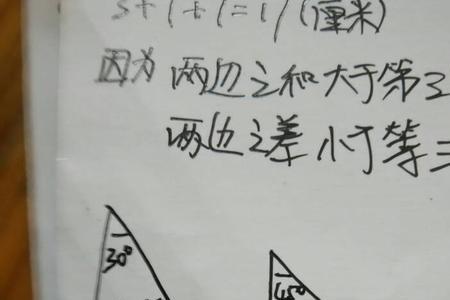 5+1+1=17(厘米)
因为 两边之和大于第三
两边之差小于等三
30°
45°